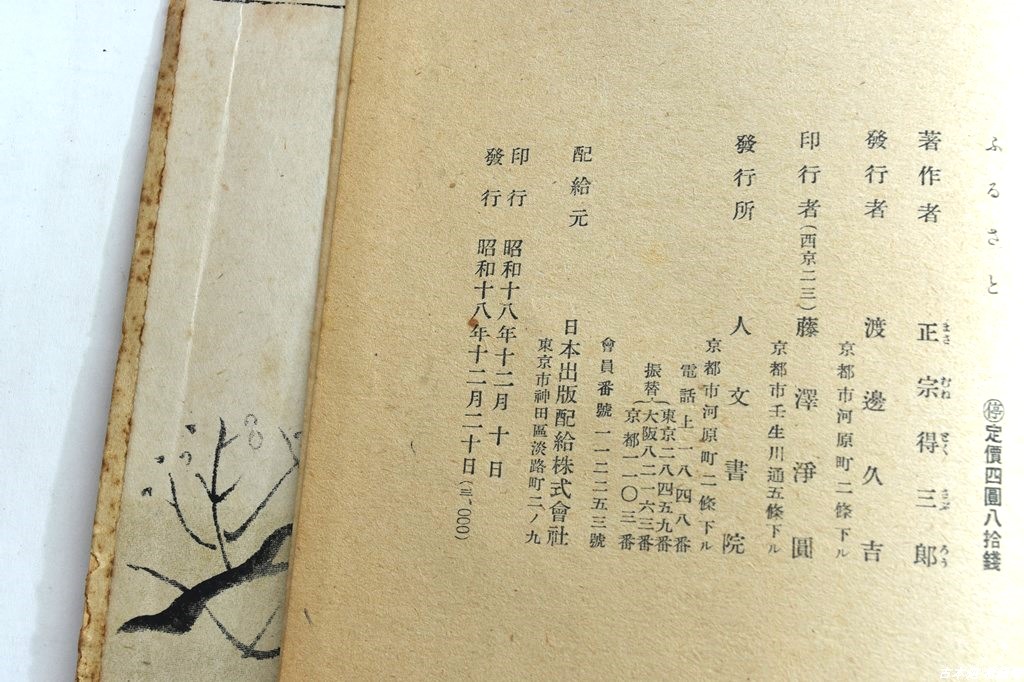 ふるさと
㊡定價四圓八拾錢
著作者 正宗得三郎
まさ むね とく さぶ ろう
發行者 渡邊久吉
京都市河原町二條下ル
印行者(西京二三)藤澤淨圓
京都市壬生川通五條下ル
發行所 人文書院
京都市河原町二條下ル
電話上一八四八番
振替
東京二八四五九番
大阪八二一六三番
京都一一〇三番
會員番號一一二二五三號
配給元 日本出版配給株式會社
東京市神田區淡路町二ノ九
印行 昭和十八年十二月十日
發行 昭和十八年十二月二十日